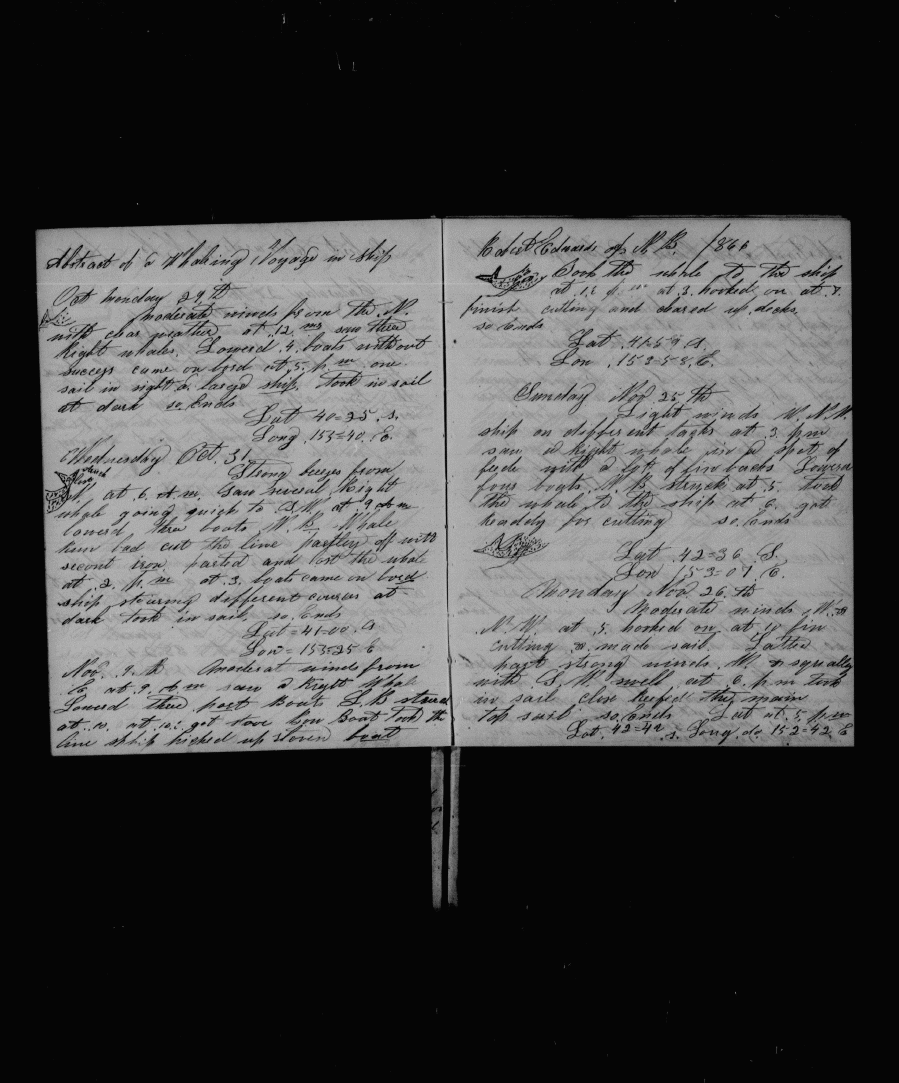 Abstract of a Whaling Voyage in ship
Oct monday 29,th
moderate winds from the N.
with clear weather at 12 ms saw three
Right whales. Lowered .4. boats without
success came on bord at 5. p. m one
sail in sight a large ship. Took in sail
at dark so Ends
Lat 40=25. S.
Long. 153=40. E.
Wednesday Oct. 31
Strong breezes from
at .6. A. m. Saw several Right
whale going quick to S.W. at 9 A m
lowerd three boats W. B. Whale
line bad cut the line partley off with
second iron parted and lost the whale
at .2. p. m at .3. boats came on bord
ship steuring different courses at
dark took in sail. so. Ends
Lat = 41-00. S
Lon = 153=25 E
Nov. 9. th moderat winds from
E. at .9. A m saw a Right Whale
Lowerd three boats L. B struck
at .10. at got stove bow Boat Took the
line ship picked up stoven boat
Edwards of N. B. 1860
Took the whale to the ship
at at .3. hooked on at 8.
finish cutting and cleared up decks,
so Ends
Lat .41=59. S.
Lon .153=58. E.
Sunday Nov 25 th
Light winds W. N. W
ship on different tacks at 3. p m
saw a right whale in a spot of
feede with a lot of fin backs. Lowerd
four boats. W. B. struck at .5. took
the whale to the ship at 6. got
ready for cutting so. Ends
Lat 42=36 S.
Lon 153=07. E.
Monday Nov 26. th
Moderate winds W. to
N. W at .5. hooked on at 10 fin
cutting & made sail. Latter
part strong winds. W. & squally
with S. W swell at .6. p. m took
in sail close reefed the main
top sail so. Ends Lat at .5. p. m
Lat. 42=42 S. Long. do. 152=42. E